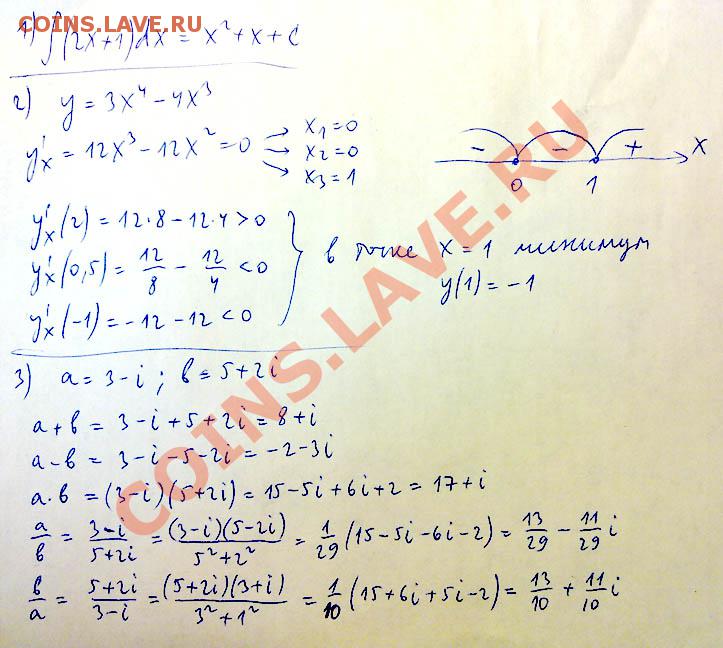 COINS.LAVE.RU
1) ∫(2x+1)dx = x² + x + c
2) y = 3x⁴ − 4x³
y'ₓ = 12x³ − 12x² = 0 → x₁ = 0
→ x₂ = 0
→ x₃ = 1
− − + x
0 1
y'ₓ(2) = 12·8 − 12·4 > 0
y'ₓ(0,5) = 12/8 − 12/4 < 0
y'ₓ(−1) = −12 − 12 < 0
в точке x = 1 минимум
y(1) = −1
3) a = 3−i ; в = 5+2i
a + в = 3−i+5+2i = 8+i
a − в = 3−i−5−2i = −2−3i
a·в = (3−i)(5+2i) = 15−5i+6i+2 = 17+i
a/в = (3−i)/(5+2i) = (3−i)(5−2i)/(5²+2²) = 1/29 (15−5i−6i−2) = 13/29 − 11/29 i
в/a = (5+2i)/(3−i) = (5+2i)(3+i)/(3²+1²) = 1/10 (15+6i+5i−2) = 13/10 + 11/10 i
COINS.LAVE.RU